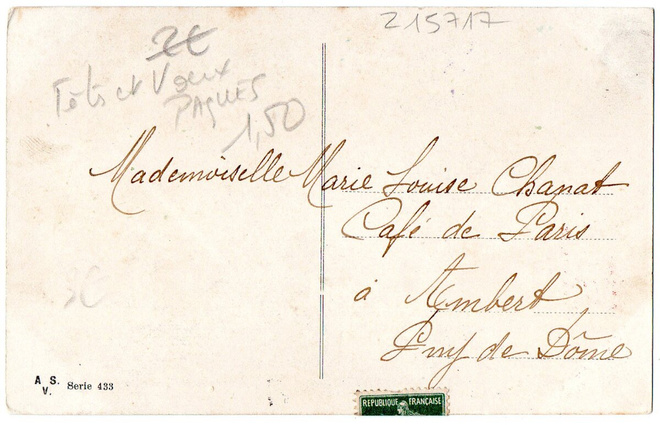 215717
2€
Fêtes et Voeux
PAQUES
1,50
Mademoiselle Marie Louise Chanat
Café de Paris
à Ambert
Puy de Dôme
3€
A. S.
V. Serie 433
REPUBLIQUE FRANÇAISE